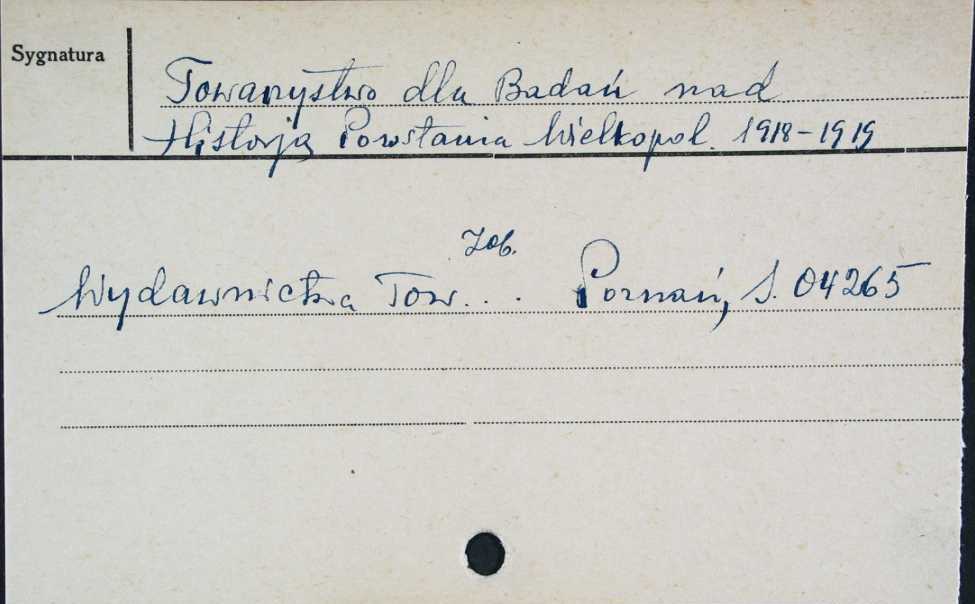 Sygnatura
Towarzystwo dla Badań nad
Historją Powstania Wielkopol. 1918-1919
Zob.
Wydawnictwa Tow... Poznań, S. 04265